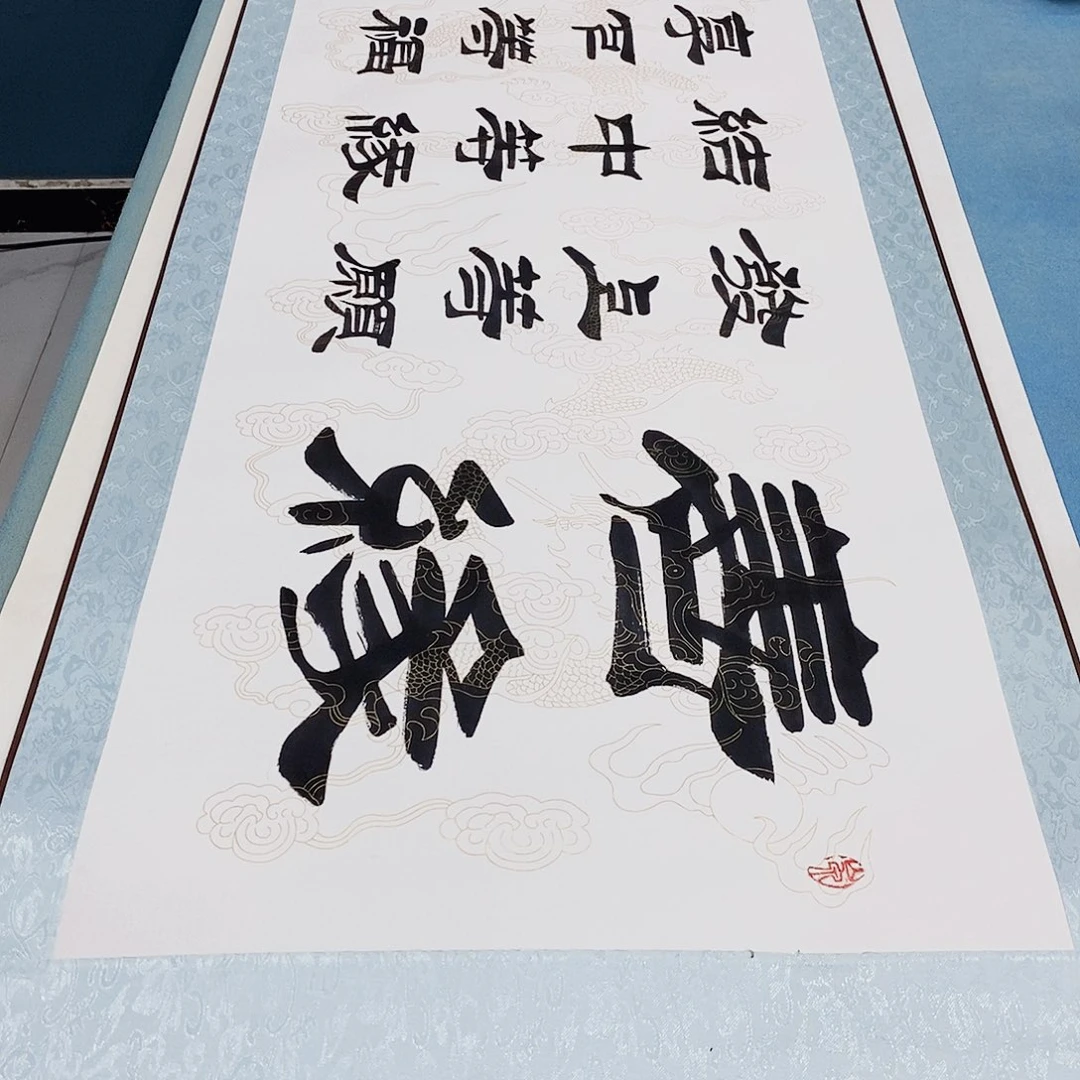 善緣
發上等願
結中等緣
享下等福